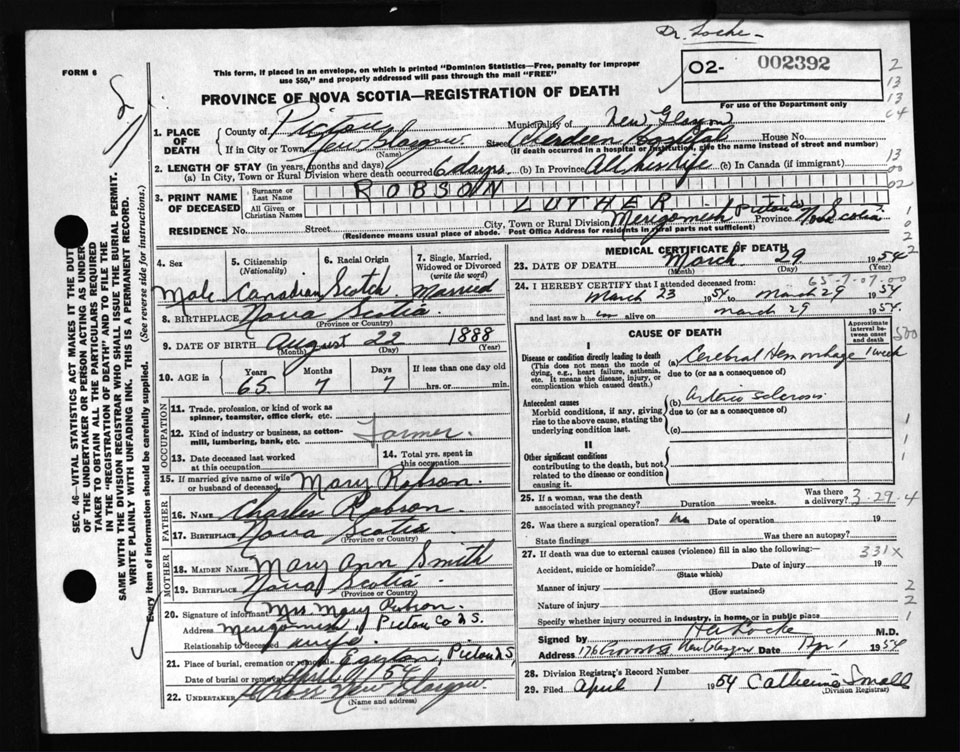 Dr. Locke
FORM 6
This form, if placed in an envelope, on which is printed "Dominion Statistics—Free, penalty for improper
use $50," and properly addressed will pass through the mail "FREE"
O2- 002392
For use of the Department only
PROVINCE OF NOVA SCOTIA—REGISTRATION OF DEATH
1. PLACE OF DEATH
County of Pictou Municipality of New Glasgow
If in City or Town New Glasgow (Name) Street Aberdeen Hospital House No.
(If death occurred in a hospital or institution, give the name instead of street and number)
2. LENGTH OF STAY (in years, months and days)
(a) In City, Town or Rural Division where death occurred 6 days (b) In Province All his life (c) In Canada (if immigrant)
3. PRINT NAME OF DECEASED
Surname or Last Name ROBSON
All Given or Christian Names LUTHER
RESIDENCE No. Street City, Town or Rural Division Merigomish Pictou Co Province Nova Scotia
(Residence means usual place of abode. Post Office Address for residents in rural parts not sufficient)
4. Sex Male
5. Citizenship (Nationality) Canadian
6. Racial Origin Scotch
7. Single, Married, Widowed or Divorced (write the word) Married
8. BIRTHPLACE Nova Scotia (Province or Country)
9. DATE OF BIRTH August (Month) 22 (Day) 1888 (Year)
10. AGE in Years 65 Months 7 Days 7 If less than one day old hrs. or min.
OCCUPATION
11. Trade, profession, or kind of work as spinner, teamster, office clerk, etc.
12. Kind of industry or business, as cotton-mill, lumbering, bank, etc. Farmer.
13. Date deceased last worked at this occupation
14. Total yrs. spent in this occupation
15. If married give name of wife or husband of deceased Mary Robson.
FATHER
16. NAME Charles Robson
17. BIRTHPLACE Nova Scotia (Province or Country)
MOTHER
18. MAIDEN NAME Mary Ann Smith
19. BIRTHPLACE Nova Scotia (Province or Country)
20. Signature of informant Mrs. Mary Robson.
Address Merigomish, Pictou Co N.S.
Relationship to deceased wife
21. Place of burial, cremation or removal Egerton, Pictou N.S,
Date of burial or removal April 1 54
22. UNDERTAKER New Glasgow. (Name and address)
MEDICAL CERTIFICATE OF DEATH
23. DATE OF DEATH March (Month) 29 (Day) 1954 (Year)
24. I HEREBY CERTIFY that I attended deceased from:
March 23 1954 to March 29 1954
and last saw him alive on march 29 1954.
CAUSE OF DEATH
Approximate interval between onset and death
I
Disease or condition directly leading to death
(This does not mean the mode of dying, e.g., heart failure, asthenia, etc. It means the disease, injury, or complication which caused death.)
(a) Cerebral Hemorrhage 1 week
due to (or as a consequence of)
Antecedent causes
Morbid conditions, if any, giving rise to the above cause, stating the underlying condition last.
(b) Arterio sclerosis
due to (or as a consequence of)
(c)
II
Other significant conditions
contributing to the death, but not related to the disease or condition causing it.
25. If a woman, was the death associated with pregnancy? Duration weeks. Was there a delivery? 3-29-4
26. Was there a surgical operation? no Date of operation 19
State findings Was there an autopsy?
27. If death was due to external causes (violence) fill in also the following:— 331x
Accident, suicide or homicide? (State which) Date of injury 19
Manner of injury (How sustained)
Nature of injury
Specify whether injury occurred in industry, in home, or in public place
Signed by Locke M.D.
Address 176 Provost St New Glasgow Date Apr 1 1954
28. Division Registrar's Record Number
29. Filed April 1 1954 Catherine Small (Division Registrar)
SEC. 46—VITAL STATISTICS ACT MAKES IT THE DUTY
OF THE UNDERTAKER OR PERSON ACTING AS UNDER-
TAKER TO OBTAIN ALL THE PARTICULARS REQUIRED
IN THE "REGISTRATION OF DEATH" AND TO FILE THE
SAME WITH THE DIVISION REGISTRAR WHO SHALL ISSUE THE BURIAL PERMIT.
WRITE PLAINLY WITH UNFADING INK. THIS IS A PERMANENT RECORD.
Every item of information should be carefully supplied. (See reverse side for instructions.)